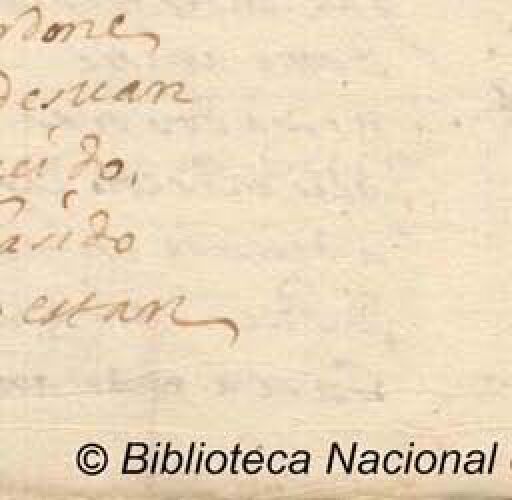 rdone
desuan
cido,
asido
estan
© Biblioteca Nacional